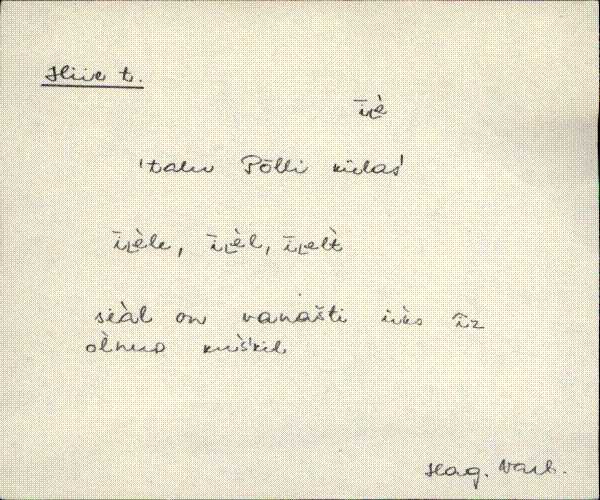 Hiie t.
īi̯è
'talu Pȫlli külas'
īi̯èle, īi̯èl, īi̯elt̀
siàl on vanašti üks īz
olnuD kuskil
Hag. Varb.